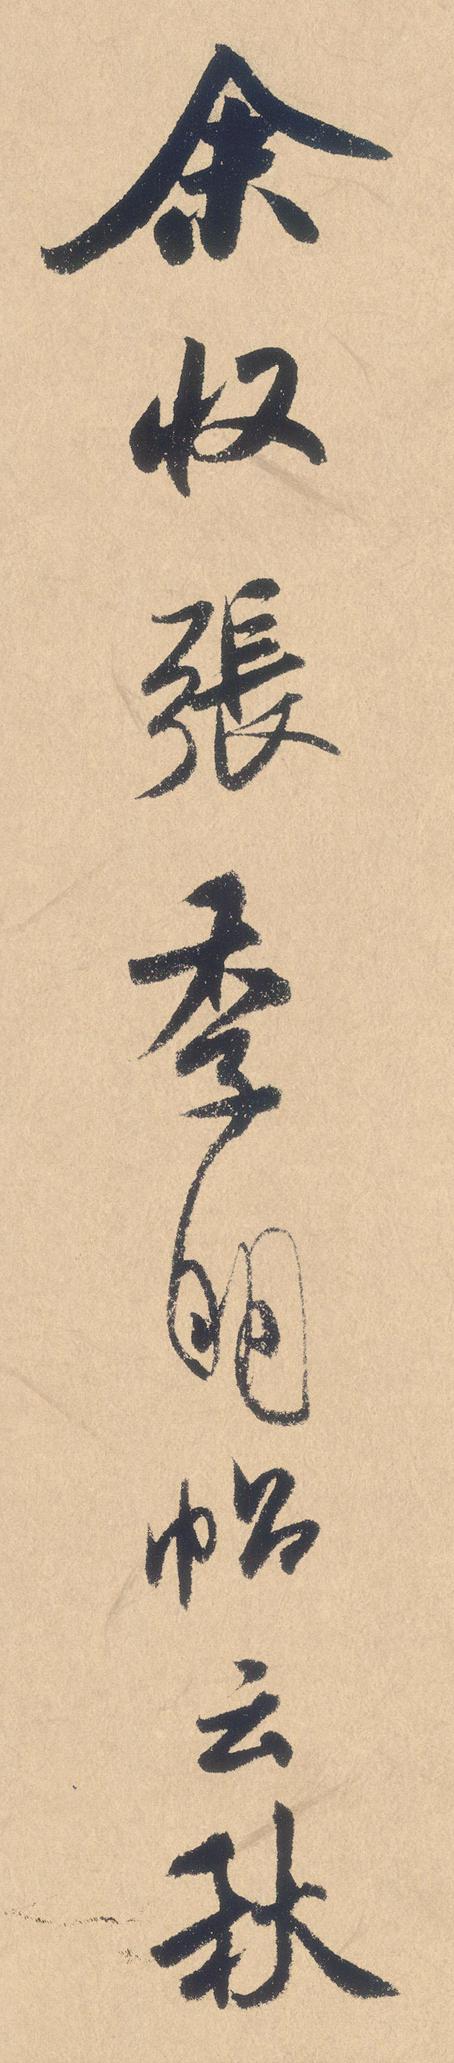 余収張季明帖云秋